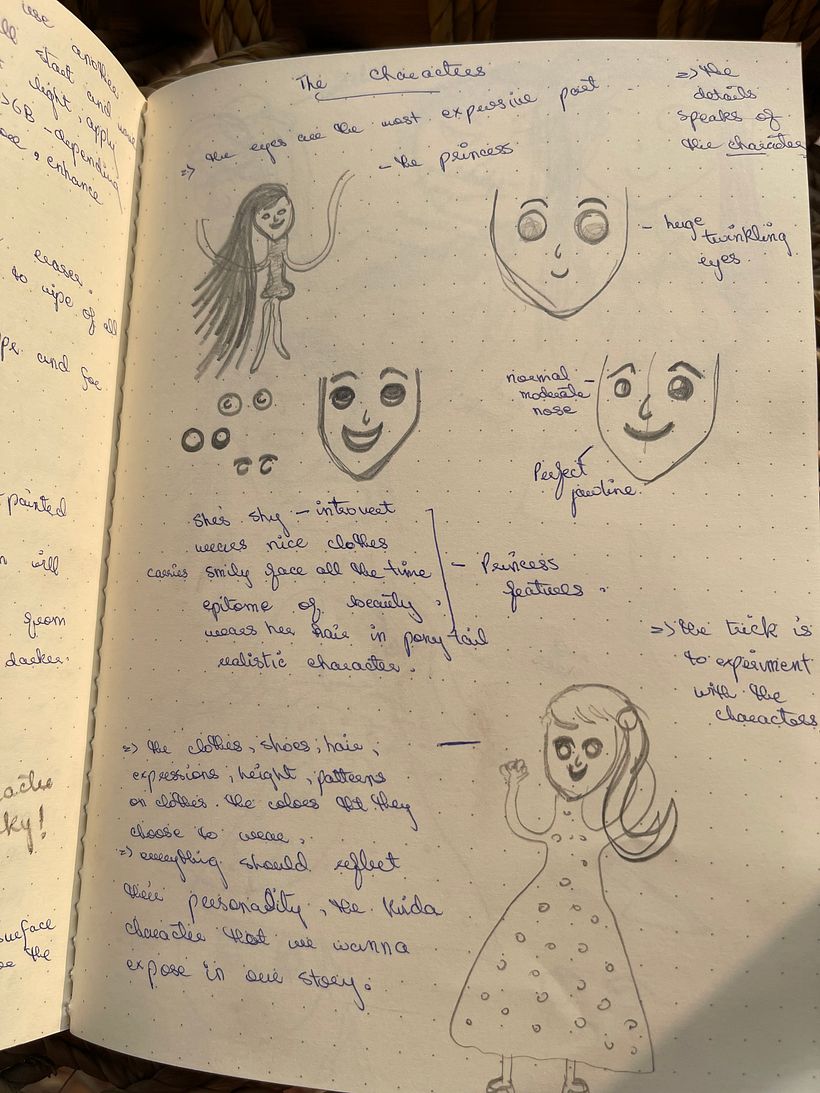 use another
start and
light, apply
>6B - depending
, enhance
eraser.
to wipe of all
and for
painted
will
from
darker.
ky!
surface
the
The characters
=> the eyes are the most expressive part
- the princess
=> the
details
speaks of
the character
- huge
twinkling
eyes
normal -
moderate
nose
Perfect
jawline.
she's shy - introvert
wears nice clothes
carries smily face all the time
epitome of beauty.
wears her hair in pony tail
realistic character.
- Princess
featuers.
=> the trick is
to experiment
with the
characters
=> the clothes, shoes, hair,
expressions, height, patterns
on clothes. the colors tht they
choose to wear.
=> everything should reflect
their personality, the kinda
character that we wanna
expose in our story.